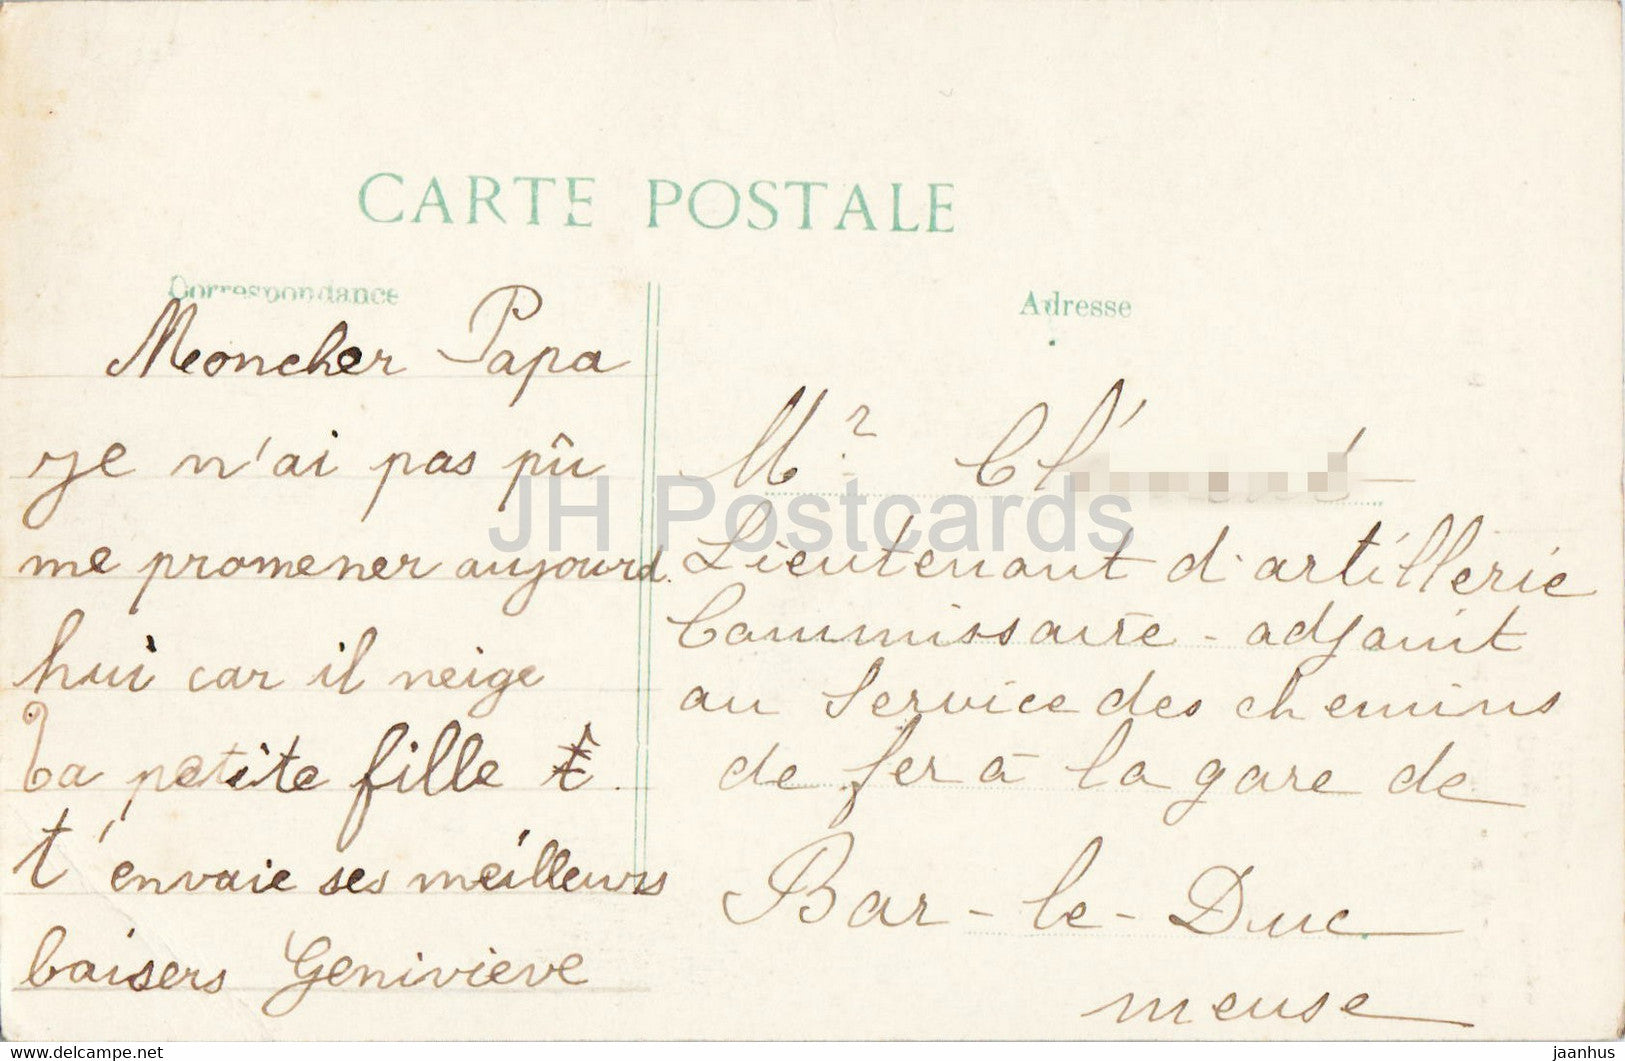 CARTE POSTALE
Correspondance
Moncher Papa
je n'ai pas pû
me promener aujourd
hui car il neige
Ta petite fille t
t'envoie ses meilleurs
baisers Geniviève
Adresse
Mr
Lieutenant d'artillerie
Commissaire-adjoint
au service des chemins
de fer à la gare de
Bar-le-Duc
meuse
JH Postcards
www.delcampe.net
jaanhus